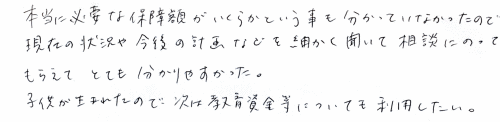 本当に必要な保障額がいくらかという事も分かっていなかったので
現在の状況や今後の計画などを細かく聞いて相談にのって
もらえてとても分かりやすかった。
子供が生まれたので次は教育資金等についても利用したい。